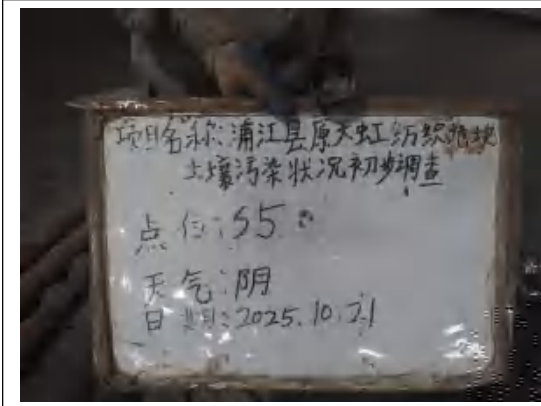 项目名称:浦江县原天虹纺织地块
土壤污染状况初步调查
点位:S5
天气:阴
日期:2025.10.21